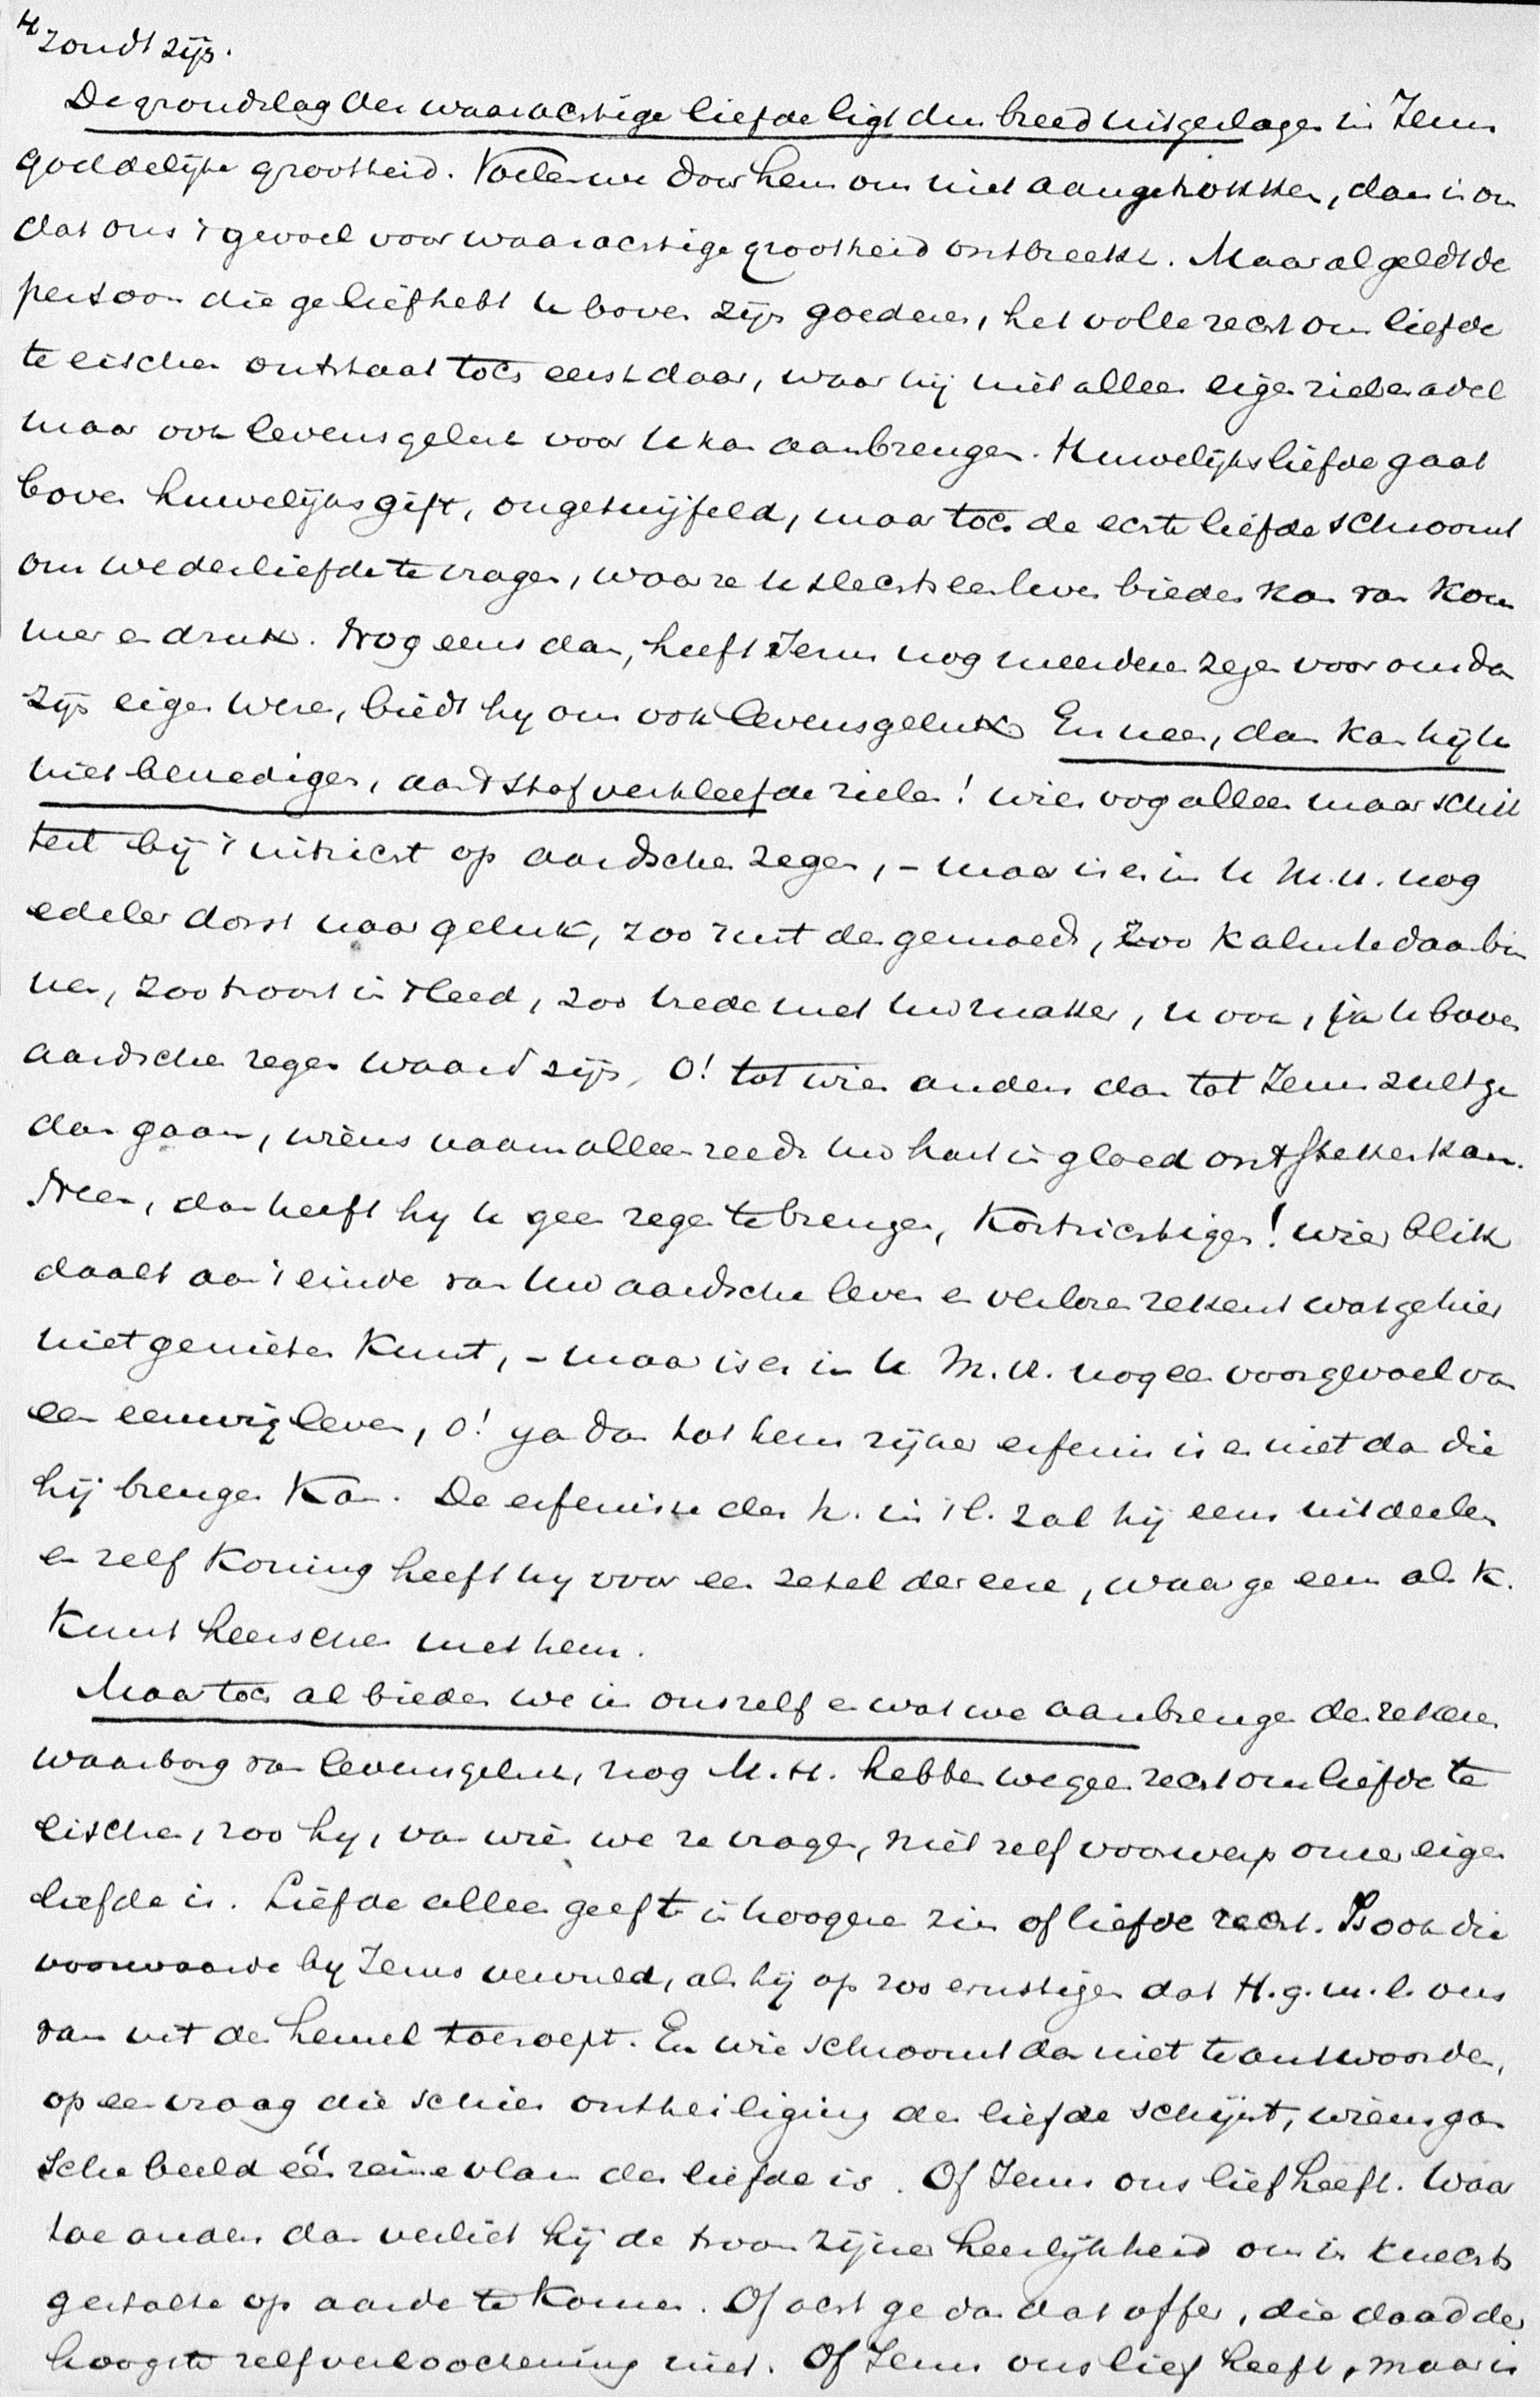 zoudt zijn.
De grondslag der waarachtige liefde ligt dus breed uitgeslagen in Jezus
goddelijke grootheid. Voelen we door hem ons niet aangetrokken, dan is om
dat ons 't gevoel voor waarachtige grootheid ontbreekt. Maar al geldt de
persoon die ge liefhebt u boven zijn goederen, het volle recht om liefde
te eischen ontstaat toch eerst daar, waar hij niet alleen eigen zielenadel
maar ook levensgeluk voor u kan aanbrengen. Huwelijksliefde gaat
boven huwelijksgift, ongetwijfeld, maar toch de echte liefde schroomt
om wederliefde te vragen, waar ze u slechts een leven bieden kan van kom
mer en druk. Nog eens dan, heeft Jezus nog meerdere zegen voor ons dan
zijn eigen wezen, biedt hij ons ook levensgeluk. En neen, dan kan hij u
niet bevredigen, aan 't stof verkleefde zielen! wier oog alleen maar schit
tert bij 't uitzicht op aardschen zegen, - maar is er in u M.H. nog
edeler dorst naar geluk, zoo rust des gemoeds, zoo kalmte daarbin
nen, zoo troost in 't leed, zoo vrede met uw maker, u ook, ja u boven
aardschen zegen waard zijn, O! tot wien anders dan tot Jezus zult ge
dan gaan, wiens naam alleen reeds uw hart in gloed ontsteken kan.
Neen, dan heeft hij u geen zegen te brengen, kortzichtigen! wier blik
daalt aan 't einde van uw aardsche leven en verloren rekent wat ge hier
niet genieten kunt, - maar is er in u M.H. nog een voorgevoel van
een eeuwig leven, o! ga dan tot hem rijker erfenis is er niet dan die
hij brengen kan. De erfenisse der h. in 't l. zal hij eens uitdeelen
en zelf Koning heeft hij voor een zetel der eere, waar ge eens als K.
kunt heerschen met hem.
Maar toch al bieden we in onszelf en wat we aanbrengen de zekere
waarborg van levensgeluk, nog M.H. hebben we geen recht om liefde te
eischen, zoo hij, van wien we ze vragen, niet zelf voorwerp onzer eigen
liefde is. Liefde alleen geeft in hoogere zin op liefde recht. Is ook die
voorwaarde bij Jezus vervuld, als hij op zoo ernstigen dat H.g.m.l. ons
van uit de hemel toeroept. En wie schroomt dan niet te antwoorden,
op een vraag die schier ontheiliging der liefde schijnt, wiens gan
sche beeld één reine vlam der liefde is. Of Jezus ons liefheeft. Waar
toe anders dan verliet hij de troon zijner heerlijkheid om in knechts
gestalte op aarde te komen. Of acht ge dan dat offer, die daad der
hoogste zelfverloochening niet. Of Jezus ons lief heeft, maar is